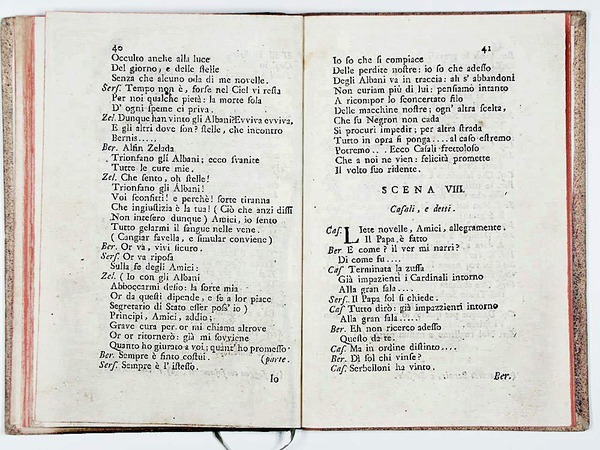 40
Occulto anche alla luce
Del giorno, e delle stelle
Senza che alcuno oda di me novelle.
Sers. Tempo non è, forse nel Ciel vi resta
Per noi qualche pietà: la morte sola
D' ogni speme ci priva.
Zel. Dunque han vinto gli Albani? Evviva evviva,
E gli altri dove son? stelle, che incontro
Bernis.....
Ber. Alfin Zelada
Trionfano gli Albani; ecco svanite
Tutte le cure mie.
Zel. Che sento, oh stelle!
Trionfano gli Albani!
Voi sconfitti! e perchè! sorte tiranna
Che ingiustizia è la tua! ( Ciò che anzi dissi
Non intesero dunque ) Amici, io sento
Tutto gelarmi il sangue nelle vene.
( Cangiar favella, e simular conviene )
Ber. Or va, vivi sicuro.
Sers. Or va riposa
Sulla fe degli Amici:
Zel. ( Io con gli Albani
Abboccarmi desio: la sorte mia
Or da questi dipende, e fe a lor piace
Segretario di Stato esser poss' io )
Principi, Amici, addio:
Grave cura per or mi chiama altrove
Or or ritornerò: già mi sovviene
Quanto ho giurato a voi; quant' ho promesso.
Ber. Sempre è finto costui. (parte.
Sers. Sempre è l' istesso.
Io
41
Io so che si compiace
Delle perdite nostre: io so che adesso
Degli Albani va in traccia: ah s' abbandoni
Non curiam più di lui: pensiamo intanto
A ricompor lo sconcertato filo
Delle macchine nostre; ogn' altra scelta,
Che su Negron non cada
Si procuri impedir; per altra strada
Tutto in opra si ponga.... al caso estremo
Potremo.. . Ecco Casali frettoloso
Che a noi ne vien: felicità promette
Il volto suo ridente.
SCENA VIII.
Casali, e detti.
Cas. Liete novelle, Amici, allegramente.
Il Papa è fatto
Ber. E come? il ver mi narri?
Di come fu....
Cas Terminata la zuffa
Già impazienti i Cardinali intorno
Alla gran sala....
Sers. Il Papa sol si chiede.
Cas Tutto dirò: già impazzienti intorno
Alla gran sala.....
Ber. Eh non ricerco adesso
Questo da te.
Cas. Ma in ordine distinto....
Ber. Di sol chi vinse?
Cas. Serbelloni ha vinto.
Ber.